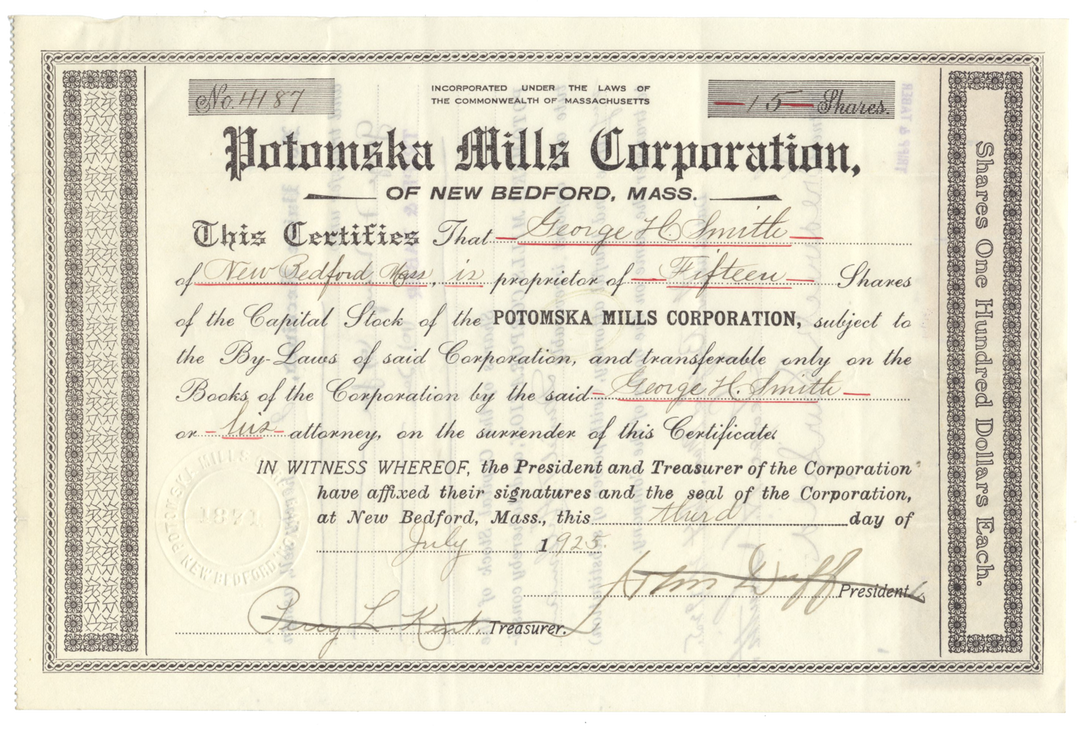 No. 4187
INCORPORATED UNDER THE LAWS OF
THE COMMONWEALTH OF MASSACHUSETTS
15 Shares.
Potomska Mills Corporation,
OF NEW BEDFORD, MASS.
This Certifies That George H Smith
of New Bedford, Mass, is proprietor of Fifteen Shares
of the Capital Stock of the POTOMSKA MILLS CORPORATION, subject to
the By-Laws of said Corporation, and transferable only on the
Books of the Corporation by the said George H. Smith
or his attorney, on the surrender of this Certificate.
IN WITNESS WHEREOF, the President and Treasurer of the Corporation
have affixed their signatures and the seal of the Corporation,
at New Bedford, Mass., this third day of
July 1925.
President
Percy L Kent. Treasurer.
Shares One Hundred Dollars Each.
POTOMSKA MILLS
1871
NEW BEDFORD
TRIPP & TABER